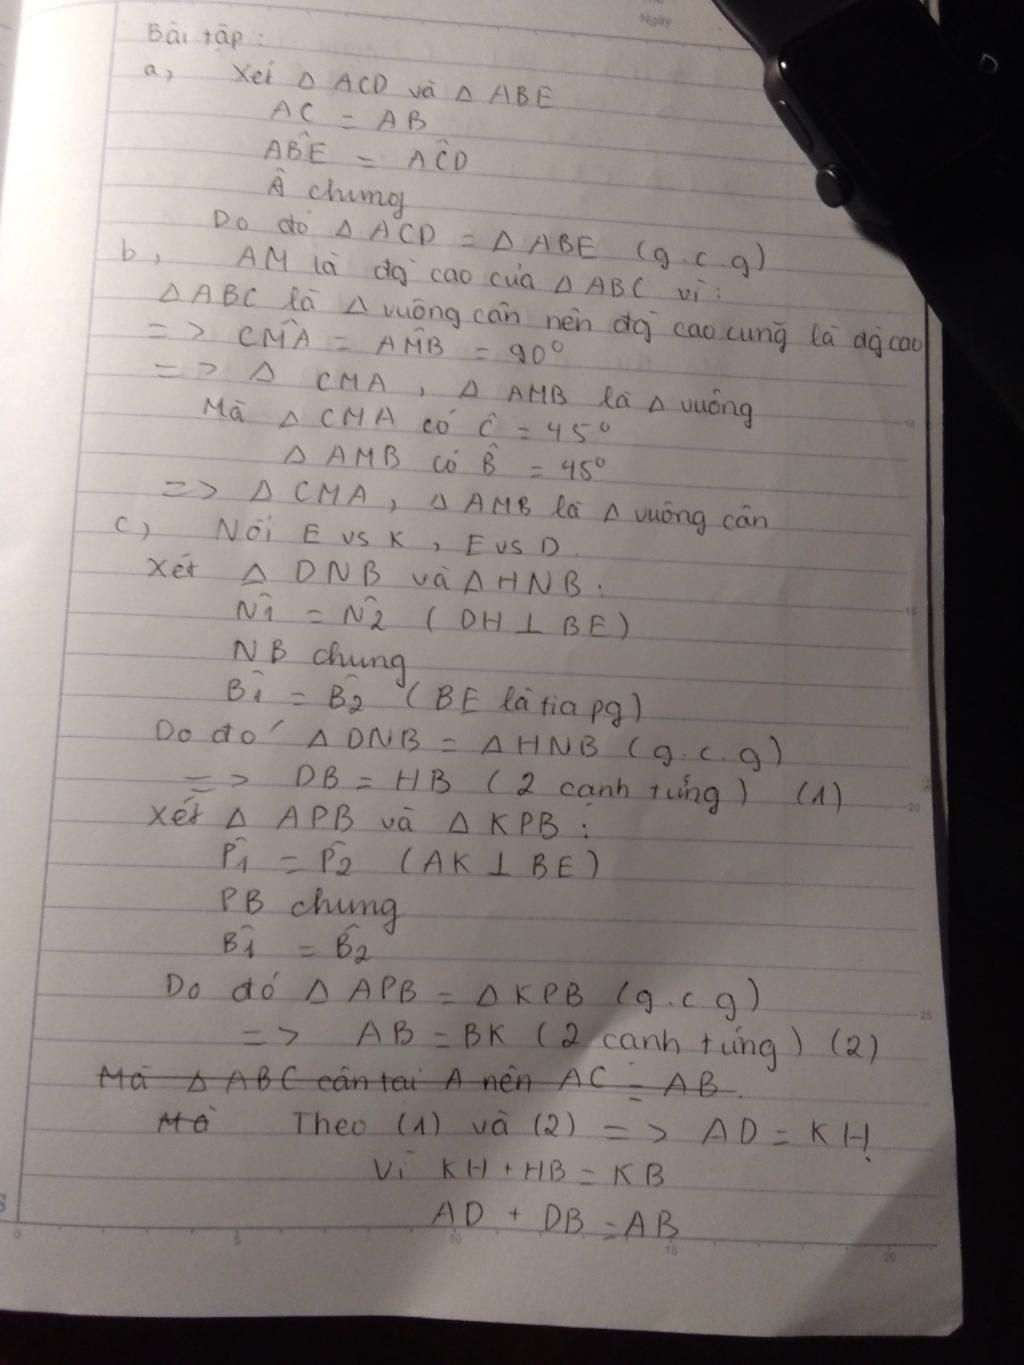 Ngày
Bài tập :
a, Xét Δ ACD và Δ ABE
AC = AB
AB̂E = AĈD
Â chung
Do đó Δ ACD = Δ ABE (g.c.g)
b, AM là đg cao của Δ ABC vì :
Δ ABC là Δ vuông cân nên đg cao cũng là đg cao
=> CM̂A = AM̂B = 90°
=> Δ CMA, Δ AMB là Δ vuông
Mà Δ CMA có Ĉ = 45°
Δ AMB có B̂ = 45°
=> Δ CMA, Δ AMB là Δ vuông cân
c, Nối E vs K, E vs D.
Xét Δ DNB và Δ HNB :
N̂1 = N̂2 (DH ⊥ BE)
NB chung
B̂1 = B̂2 (BE là tia pg)
Do đó Δ DNB = Δ HNB (g.c.g)
=> DB = HB (2 cạnh tứng) (1)
Xét Δ APB và Δ KPB :
P̂1 = P̂2 (AK ⊥ BE)
PB chung
B̂1 = B̂2
Do đó Δ APB = Δ KPB (g.c.g)
=> AB = BK (2 cạnh tứng) (2)
Mà Δ ABC cân tại A nên AC = AB.
Mà Theo (1) và (2) => AD = KH
Vì KH + HB = KB
AD + DB = AB
0 5 10 15 20
10
15
20
25
S